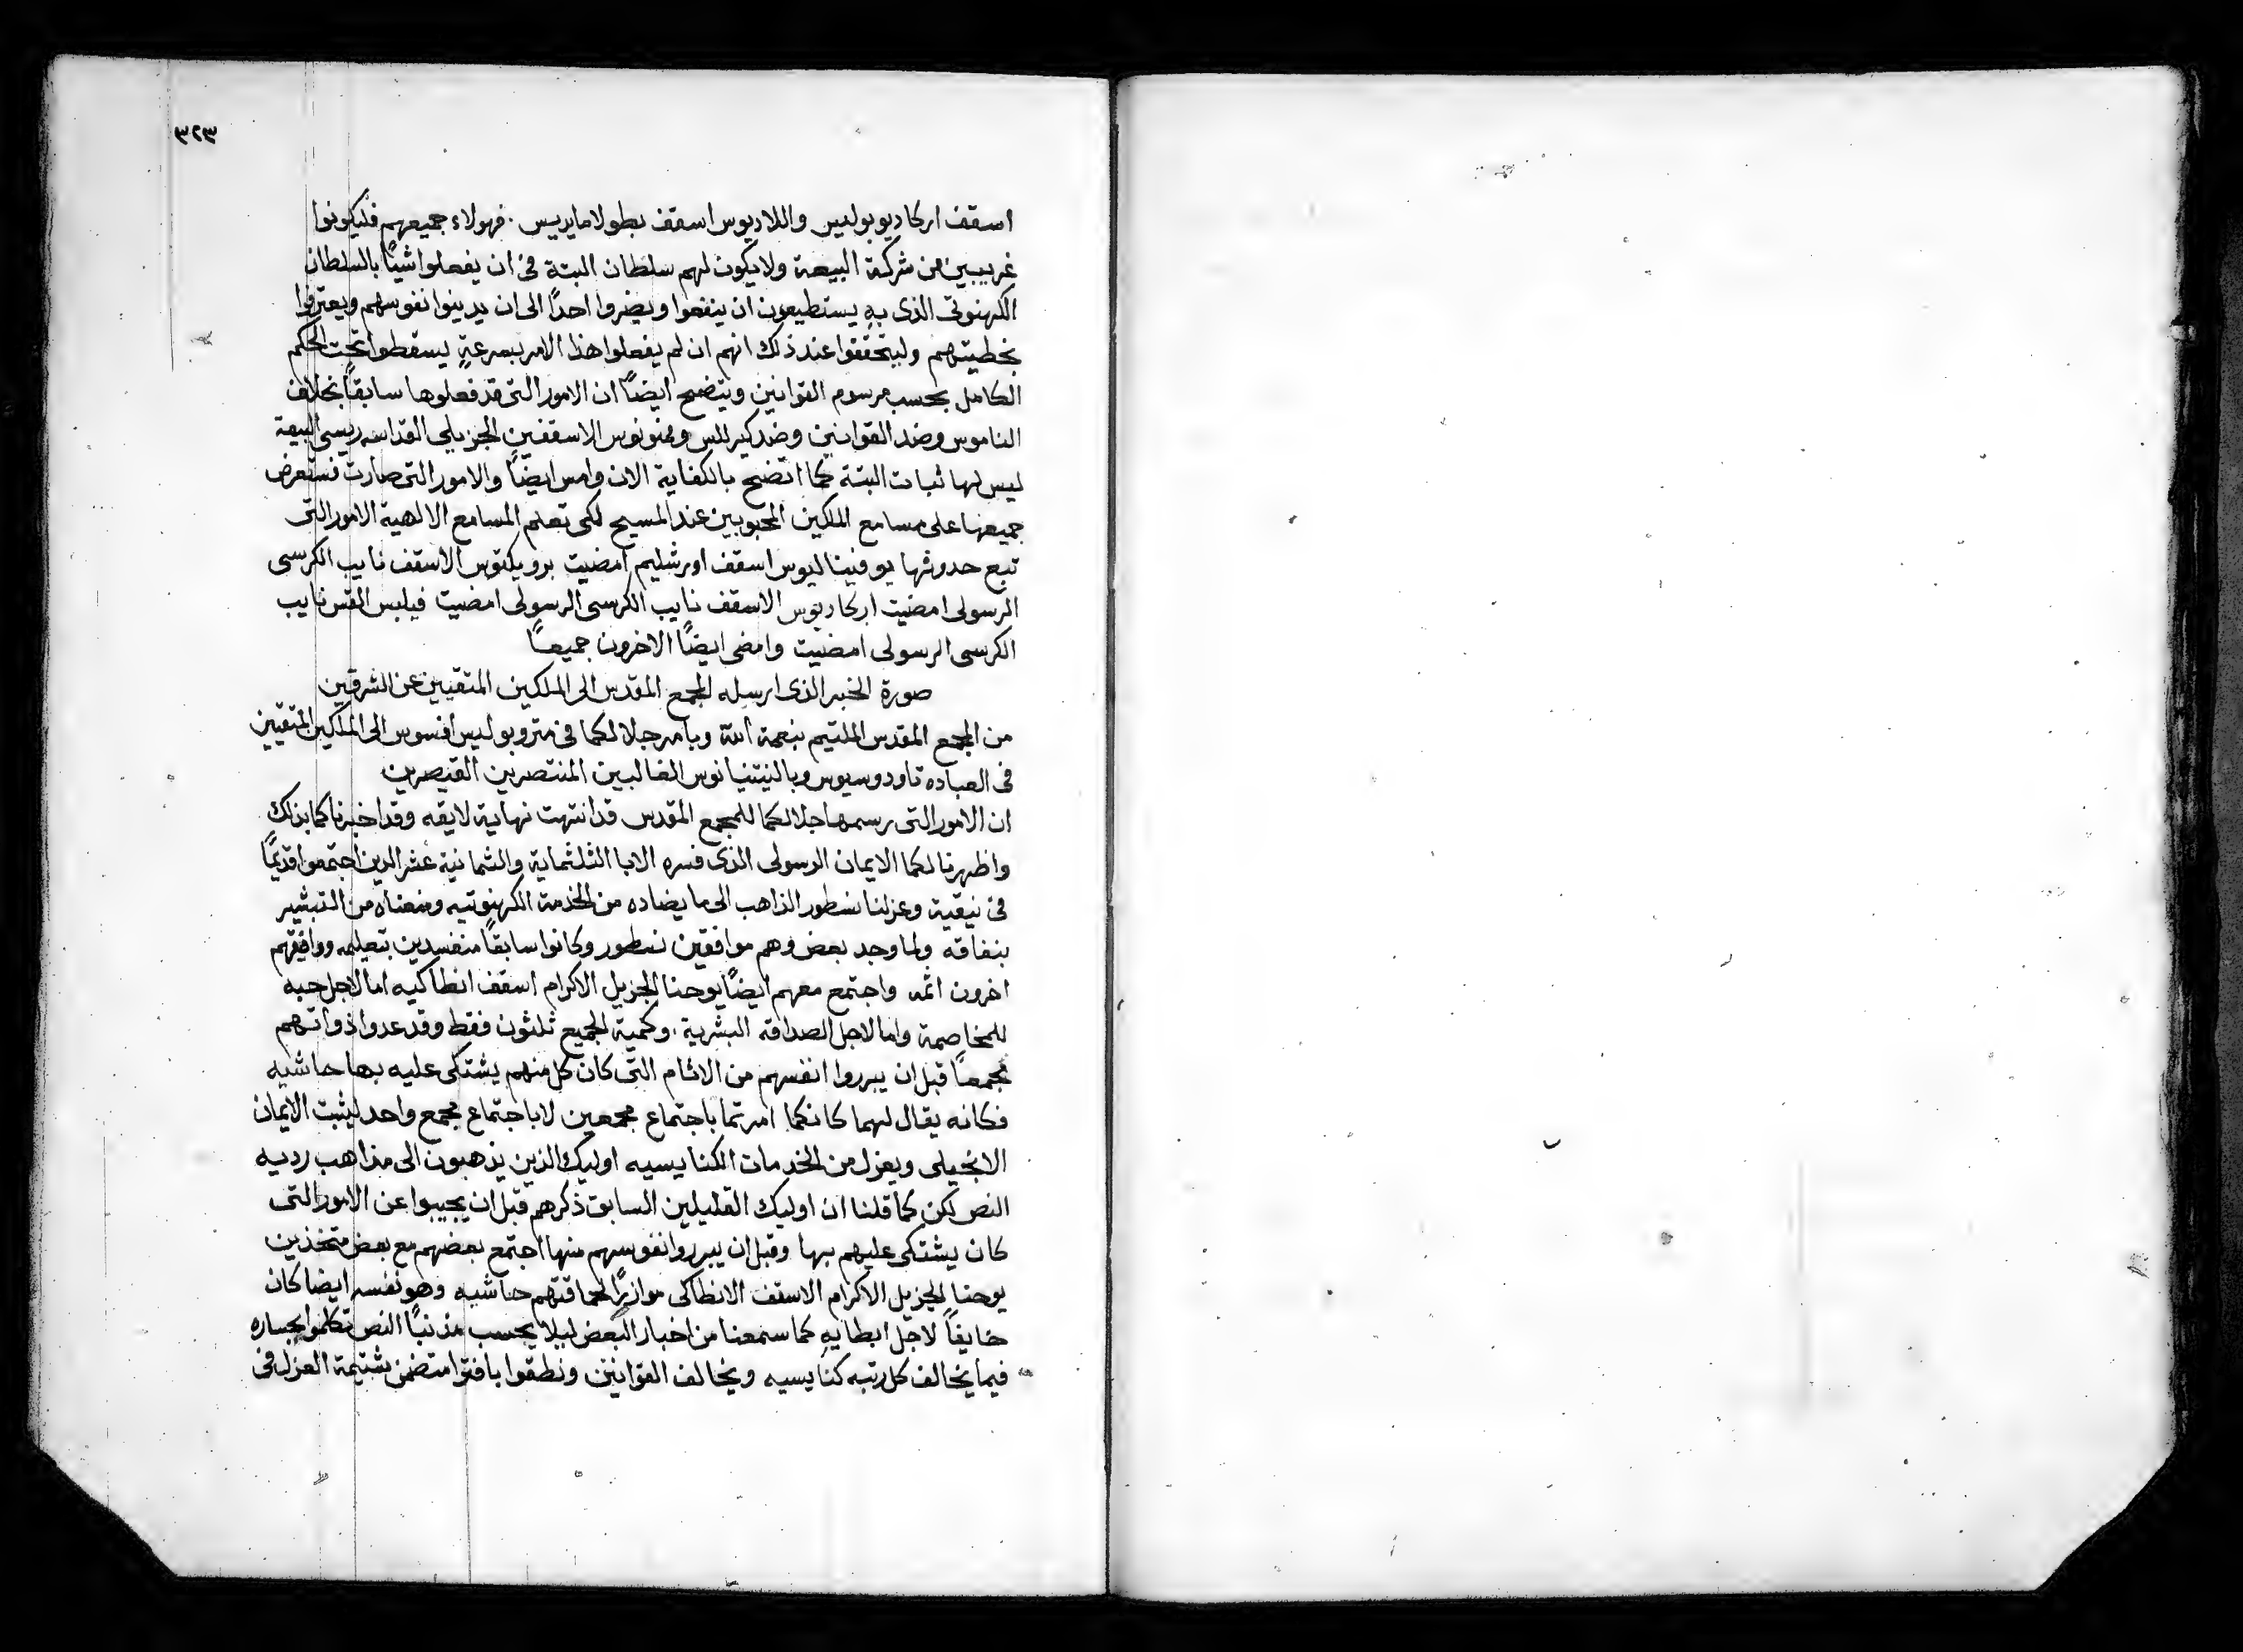 ٣٢٣
اسقف اركاديوبوليس واللاديوس اسقف بطولامايديس . فهولاء جميعهم فليكونوا
غريبين من شركة البيعة ولا يكون لهم سلطان البتة فى ان يفعلوا شيًا بالسلطان
الكهنوتى الذى به يستطيعون ان ينفعوا ويضروا احدًا الى ان يدينوا نفوسهم ويعترفوا
بخطيتهم وليتحققوا عند ذلك انهم ان لم يفعلوا هذا الامر بسرعةٍ يسقطوا تحت الحكم
الكامل بحسب مرسوم القوانين ويتضح ايضًا ان الامور التى قد فعلوها سابقًا بخلاف
الناموس وضد القوانين وضد كيرللس وممنونوس الاسقفين الجزيلى القداسه ريسى البيعة
ليس لها ثبات البتة كما اتضح بالكفاية الان وامس ايضًا والامور التى صارت تستعرض
جميعها على مسامع الملكين المحبوبين عند المسيح لكى تعلم المسامع الالهية الامور التى
تبع حدوثها يوفيناليوس اسقف اورشليم امضيت برويكتوس الاسقف نايب الكرسى
الرسولى امضيت اركاديوس الاسقف نايب الكرسى الرسولى امضيت فيلبس القس نايب
الكرسى الرسولى امضيت وامضى ايضًا الاخرون جميعًا
صورة الخبر الذى ارسله المجمع المقدس الى الملكين المتقيين عن الشرقيين
من المجمع المقدس الملتيم بنعمة الله وبامر جلالكما فى متروبوليس افسوس الى الملكين المتقيين
فى العباده تاودوسيوس وبالنتنيانوس الغالبين المنتصرين القيصرين
ان الامور التى رسمها جلالكما للمجمع المقدس قد انتهت نهاية لايقه وقد اخبرناكما بذلك
واظهرنا لكما الايمان الرسولى الذى فسره الابا الثلثماية والثمانية عشر الدين اجتمعوا قديمًا
فى نيقية وعزلنا نسطور الذاهب الى ما يضاده من الخدمة الكهنوتيه ومنعناه من التبشير
بنفاقه ولما وجد بعض وهم موافقين نسطور وكانوا سابقًا منفسدين بتعليمه ووافقهم
اخرون اثمه واجتمع معهم ايضًا يوحنا الجزيل الاكرام اسقف انطاكيه اما لاجل حبه
للمخاصمة واما لاجل الصداقه البشرية . وكمية الجميع ثلثون فقط وقد عدوا ذواتهم
مجمعًا قبل ان يبرروا انفسهم من الاثام التى كان كل منهم يشتكى عليه بها حاشيه
فكانه يقال لهما كانكما امرتما باجتماع مجمعين لا باجتماع مجمع واحد ليثبت الايمان
الانجيلى ويعزل من الخدمات الكنايسيه اوليك الذين يذهبون الى مذاهب رديه
النص لكن كما قلنا ان اوليك القليلين السابق ذكرهم قبل ان يجيبوا عن الامور التى
كان يشتكى عليهم بها وقبل ان يبرروا نفوسهم منها اجتمع بعضهم مع بعض متخذين
يوحنا الجزيل الاكرام الاسقف الانطاكى موازرًا لحماقتهم حاشيه وهو نفسه ايضا كان
خايفًا لاجل ابطايه كما سمعنا من اخبار البعض ليلا يحسب مذنبًا النص تكلموا بجساره
فيما يخالف كل رتبه كنايسيه ويخالف القوانين ونطقوا بافترا متضمن شتيمة العزل فى